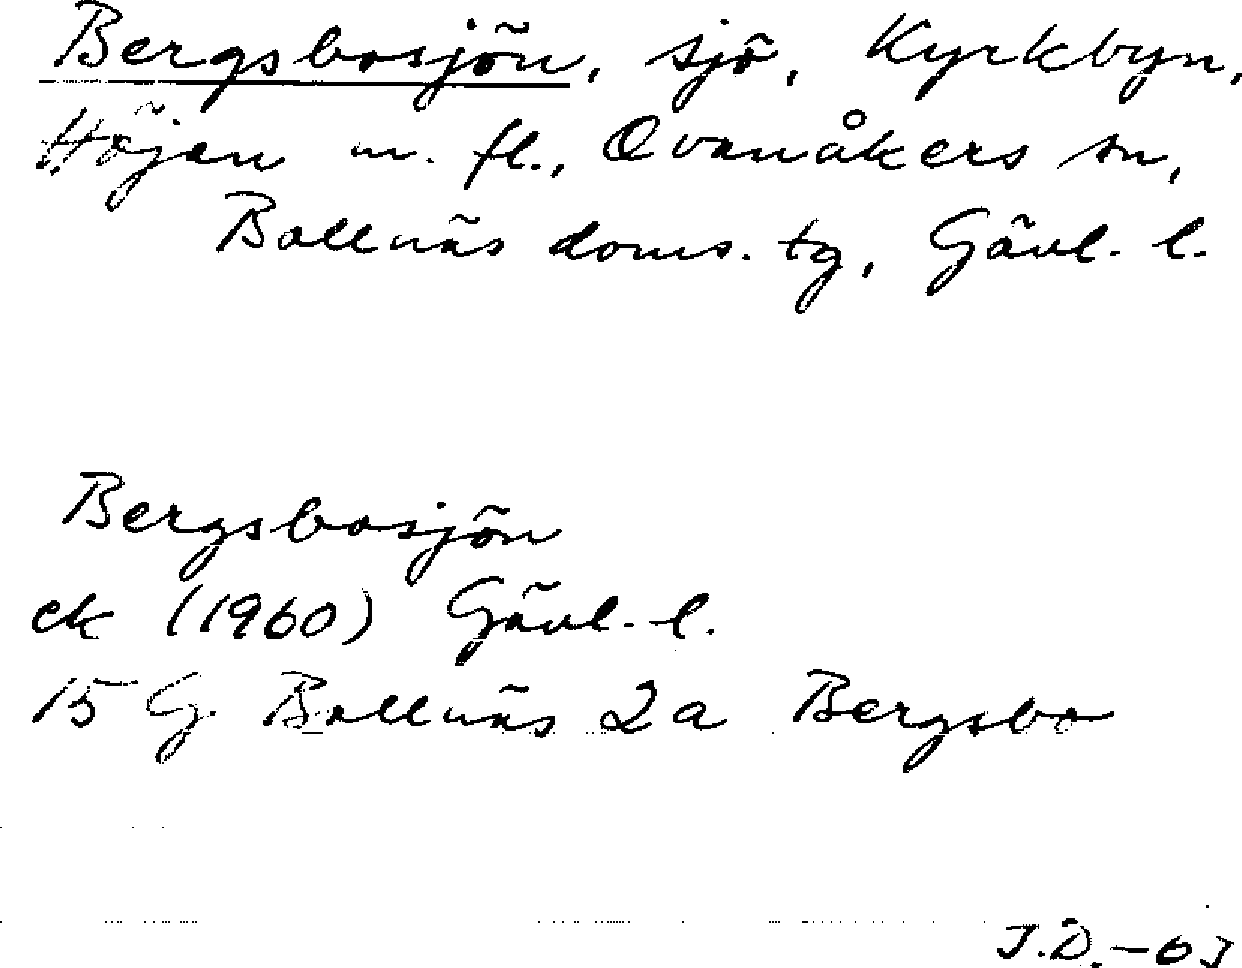 Bergsbosjön, sjö, Kyrkbyn,
Höjen m. fl., Ovanåkers sn,
Bollnäs doms. tg, Gävl. l.
Bergsbosjön
ek (1960) Gävl. l.
15 G Bollnäs 2a Bergsbo
J.D.-63